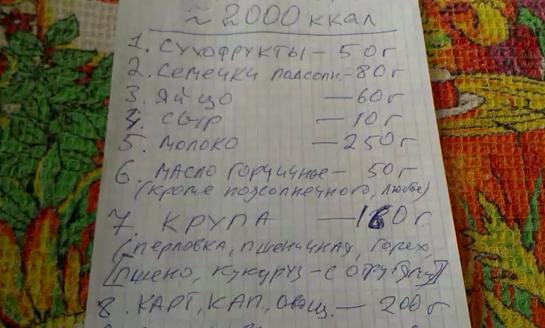 ≈ 2000 ккал
1. Сухофрукты – 50г
2. Семечки подсолн. – 80г
3. Яйцо — 60г
4. Сыр — 10г
5. Молоко — 250г
6. Масло горчичное – 50г
(кроме подсолнечного, любое)
7. КРУПА — 160г.
(перловка, пшеничная, горох,
[пшено, кукуруз – с
8. КАРТ, КАП, Овощ. — 200г